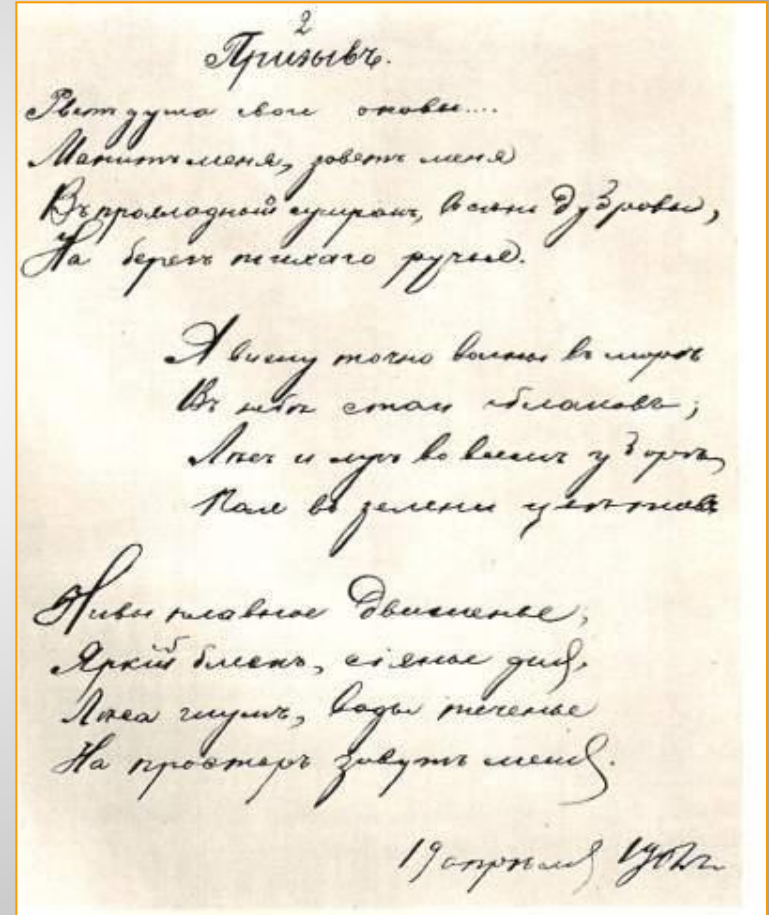 2
Призывъ.
Рветъ душа свои оковы....
Манитъ меня, зоветъ меня
Въ прохладный сумракъ, въ сѣни дубровы,
На берегъ тихаго ручья.
Я вижу точно волны въ морѣ
Въ небѣ стаи облаковъ;
Лѣсъ и лугъ во всемъ уборѣ,
Поле въ зелени цвѣтковъ
Нивы плавное движенье,
Яркій блескъ, сіянье дня,
Лѣса шумъ, воды теченье
На просторъ зовутъ меня.
19 апрѣля